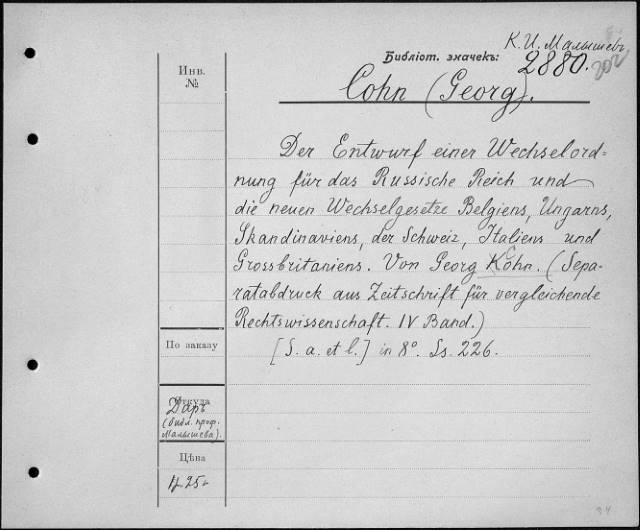 К. И. Малышевъ
Библіот. значекъ: 2880.
202
Cohn (Georg).
Инв.
№
Der Entwurf einer Wechselord=
nung für das Russische Reich und
die neuen Wechselgesetze Belgiens, Ungarns,
Skandinaviens, der Schweiz, Italiens und
Grossbritaniens. Von Georg Kohn. (Sepa-
ratabdruck aus Zeitschrift für vergleichende
Rechtswissenschaft. IV Band.)
[S. a. et l.] in 8°. Ss. 226.
По заказу
Откуда
Даръ
(библ. проф.
Малышева).
Цѣна